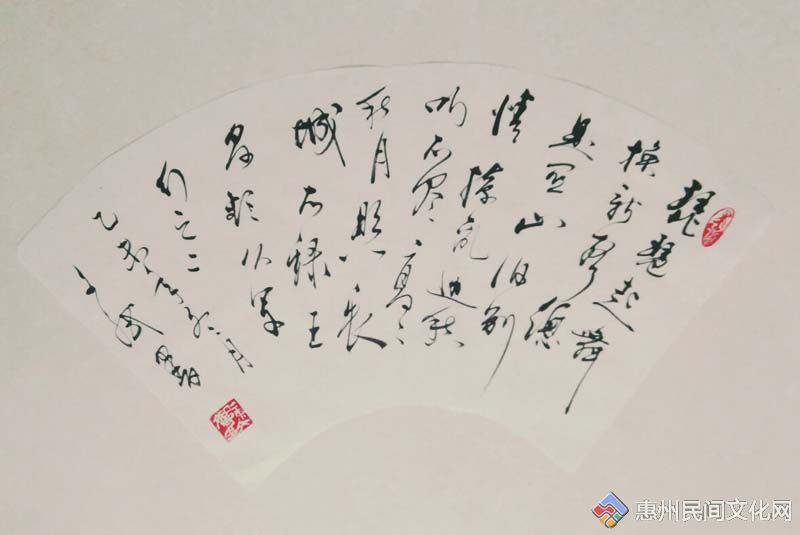 琵琶起舞
换新声总
是关山旧别
情撩乱边愁
听不尽高高
秋月照长
城右录王
昌龄从军
行之二
惠州民间文化网